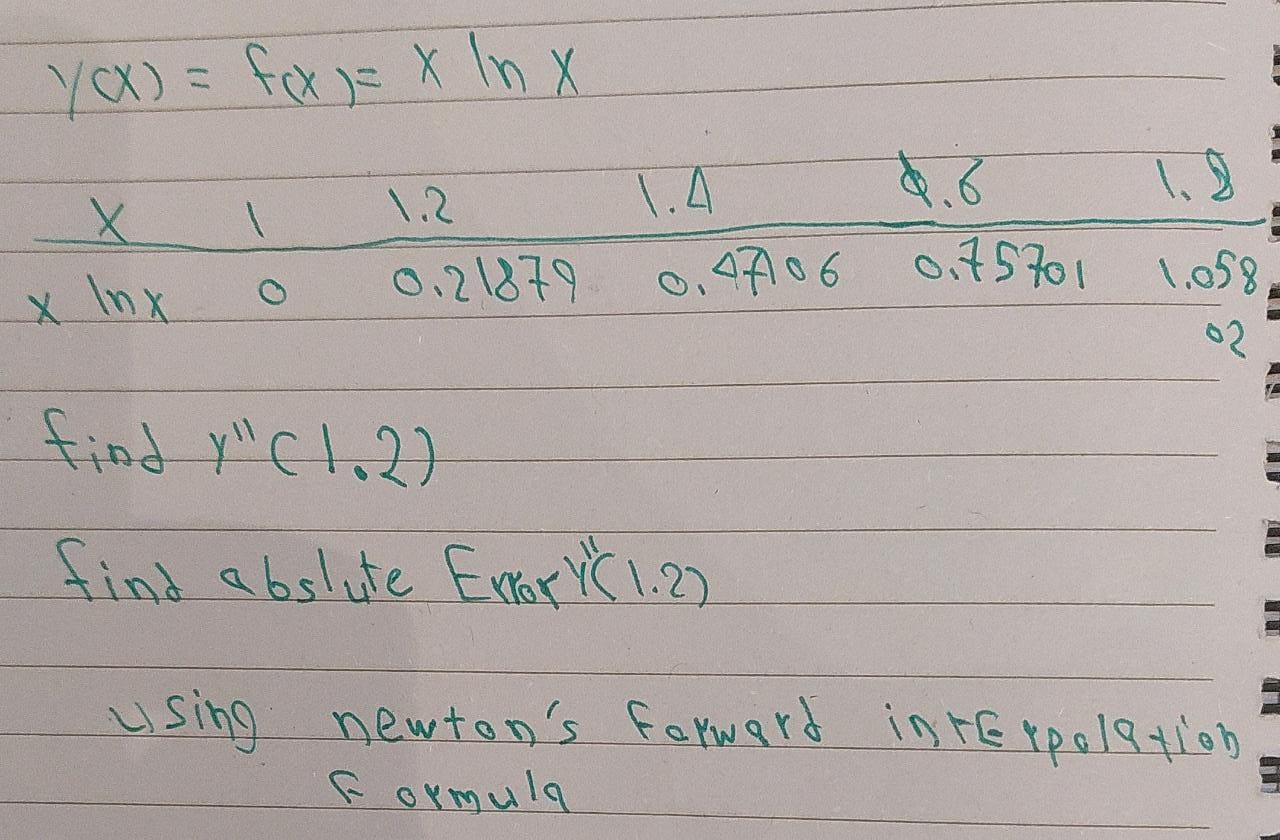 y(x) = f(x) = x ln x
x 1 1.2 1.4 1.6 1.8
x ln x 0 0.21879 0.47106 0.75701 1.058
02
find y"(1.2)
find abslute Error y"(1.2)
using newton's forward intErpolation
Formula